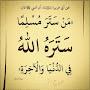 مَنْ سَتَرَ مُسْلِمًا
سَتَرَهُ اللّٰهُ
فِي الدُّنْيَا وَالْآخِرَةِ